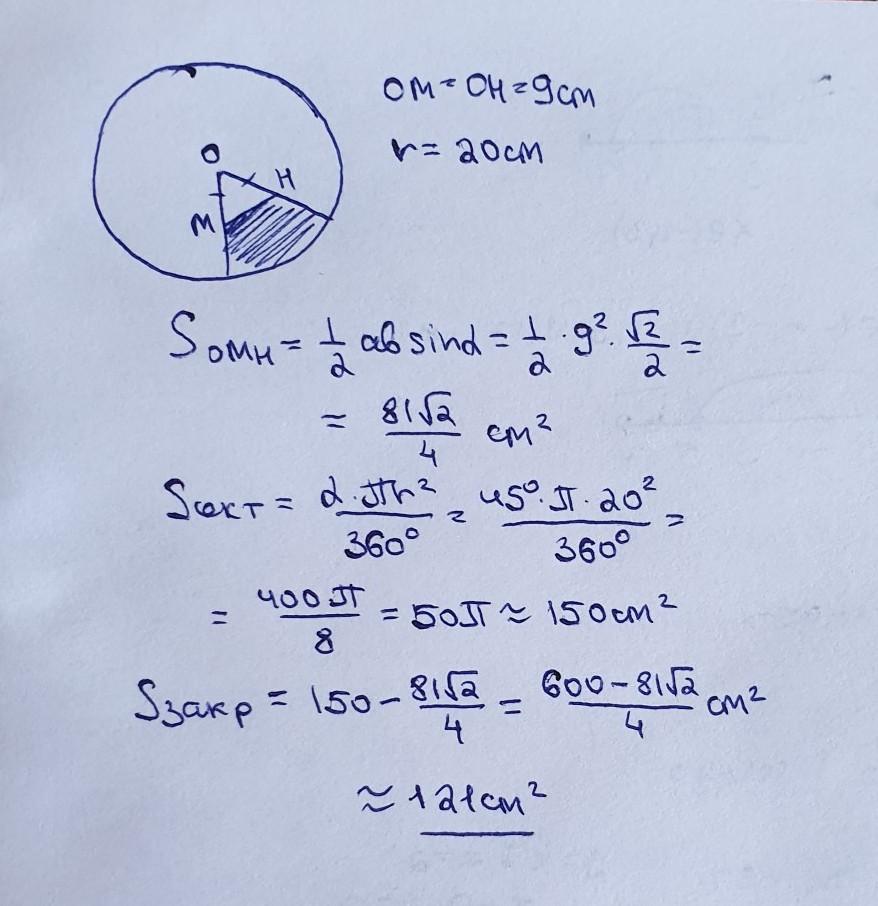 OM = OH = 9 см
r = 20 см
O
H
M
S OMH = 1/2 ab sin α = 1/2 · 9² · √2/2 =
= 81√2/4 см²
Sсект = α · πr²/360° = 45° · π · 20²/360° =
= 400π/8 = 50π ≈ 150 см²
Sзакр = 150 − 81√2/4 = 600 − 81√2/4 см²
≈ 121 см²